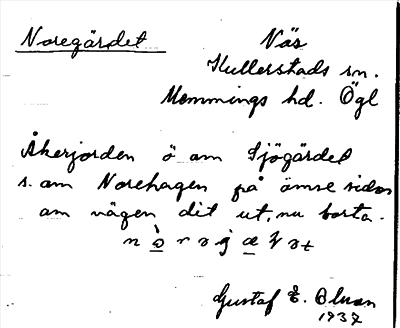 Noregärdet
Näs
Kullerstads sn.
Memmings hd. Ögl
Åkerjorden ö om Sjögärdet
s. om Norehagen på ömse sidor
om vägen dit ut, nu borta.
Gustaf E. Olsson
1937